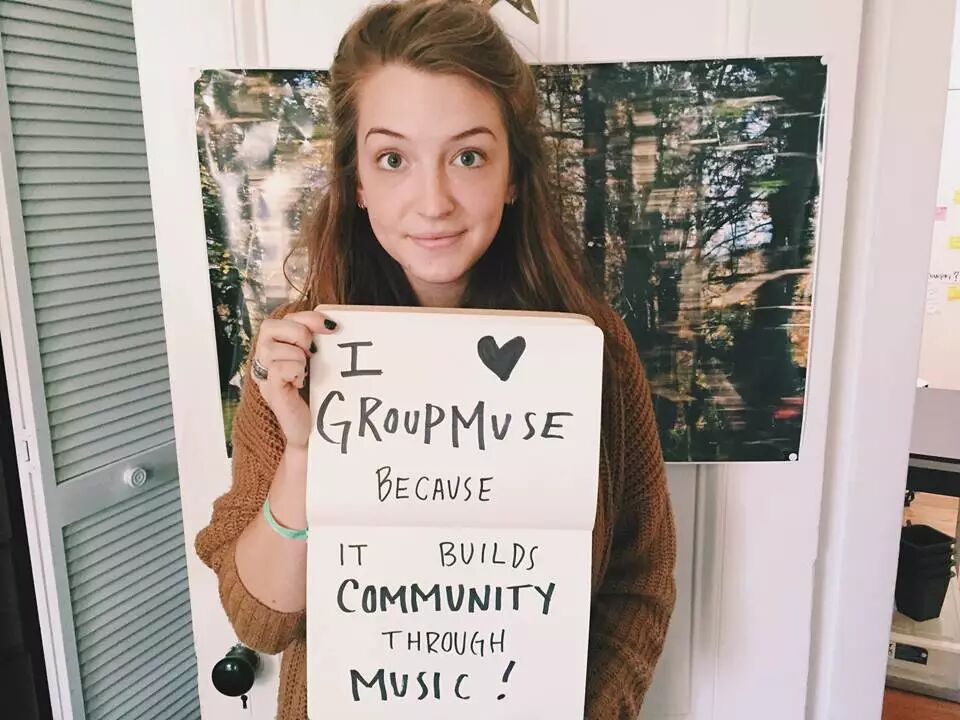 I ♥
GROUPMUSE
BECAUSE
IT BUILDS
COMMUNITY
THROUGH
MUSIC!